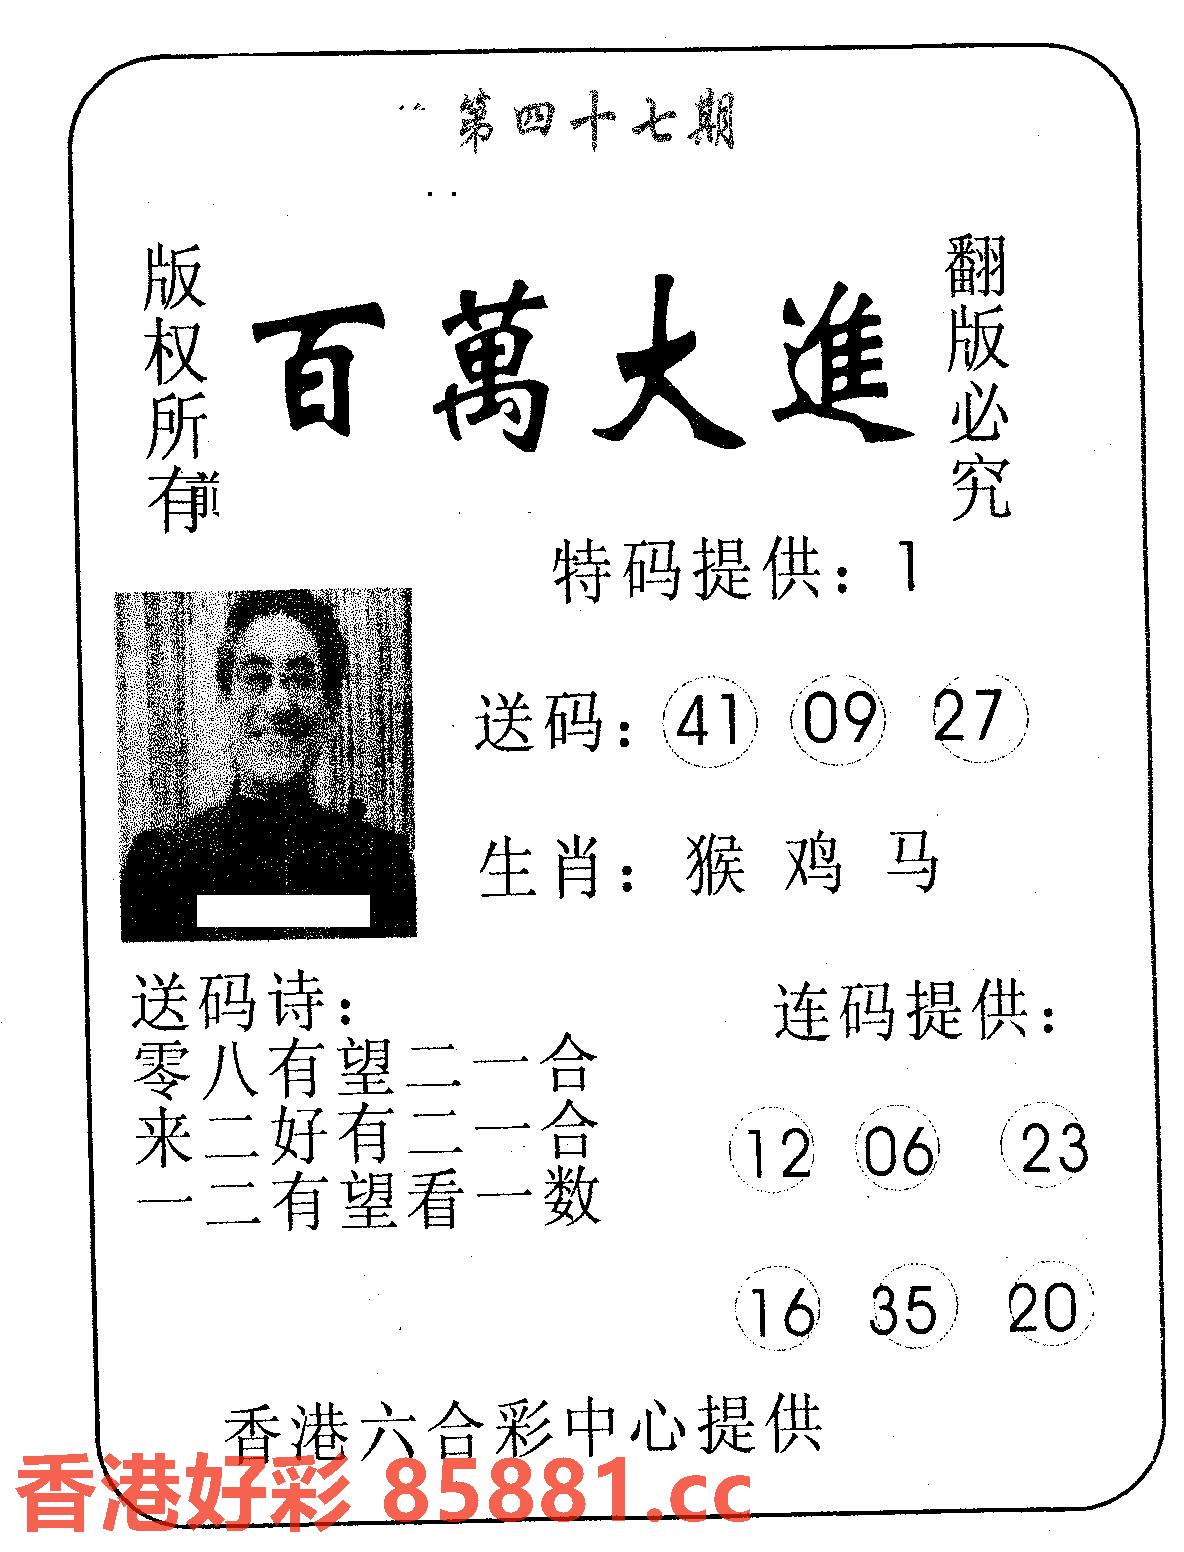 第四十七期
版权所有
百萬大進
翻版必究
特码提供：1
送码：41 09 27
生肖：猴 鸡 马
送码诗：
零八有望二一合
来二好有二一合
一二有望看一数
连码提供：
12 06 23
16 35 20
香港六合彩中心提供
香港好彩 85881.cc